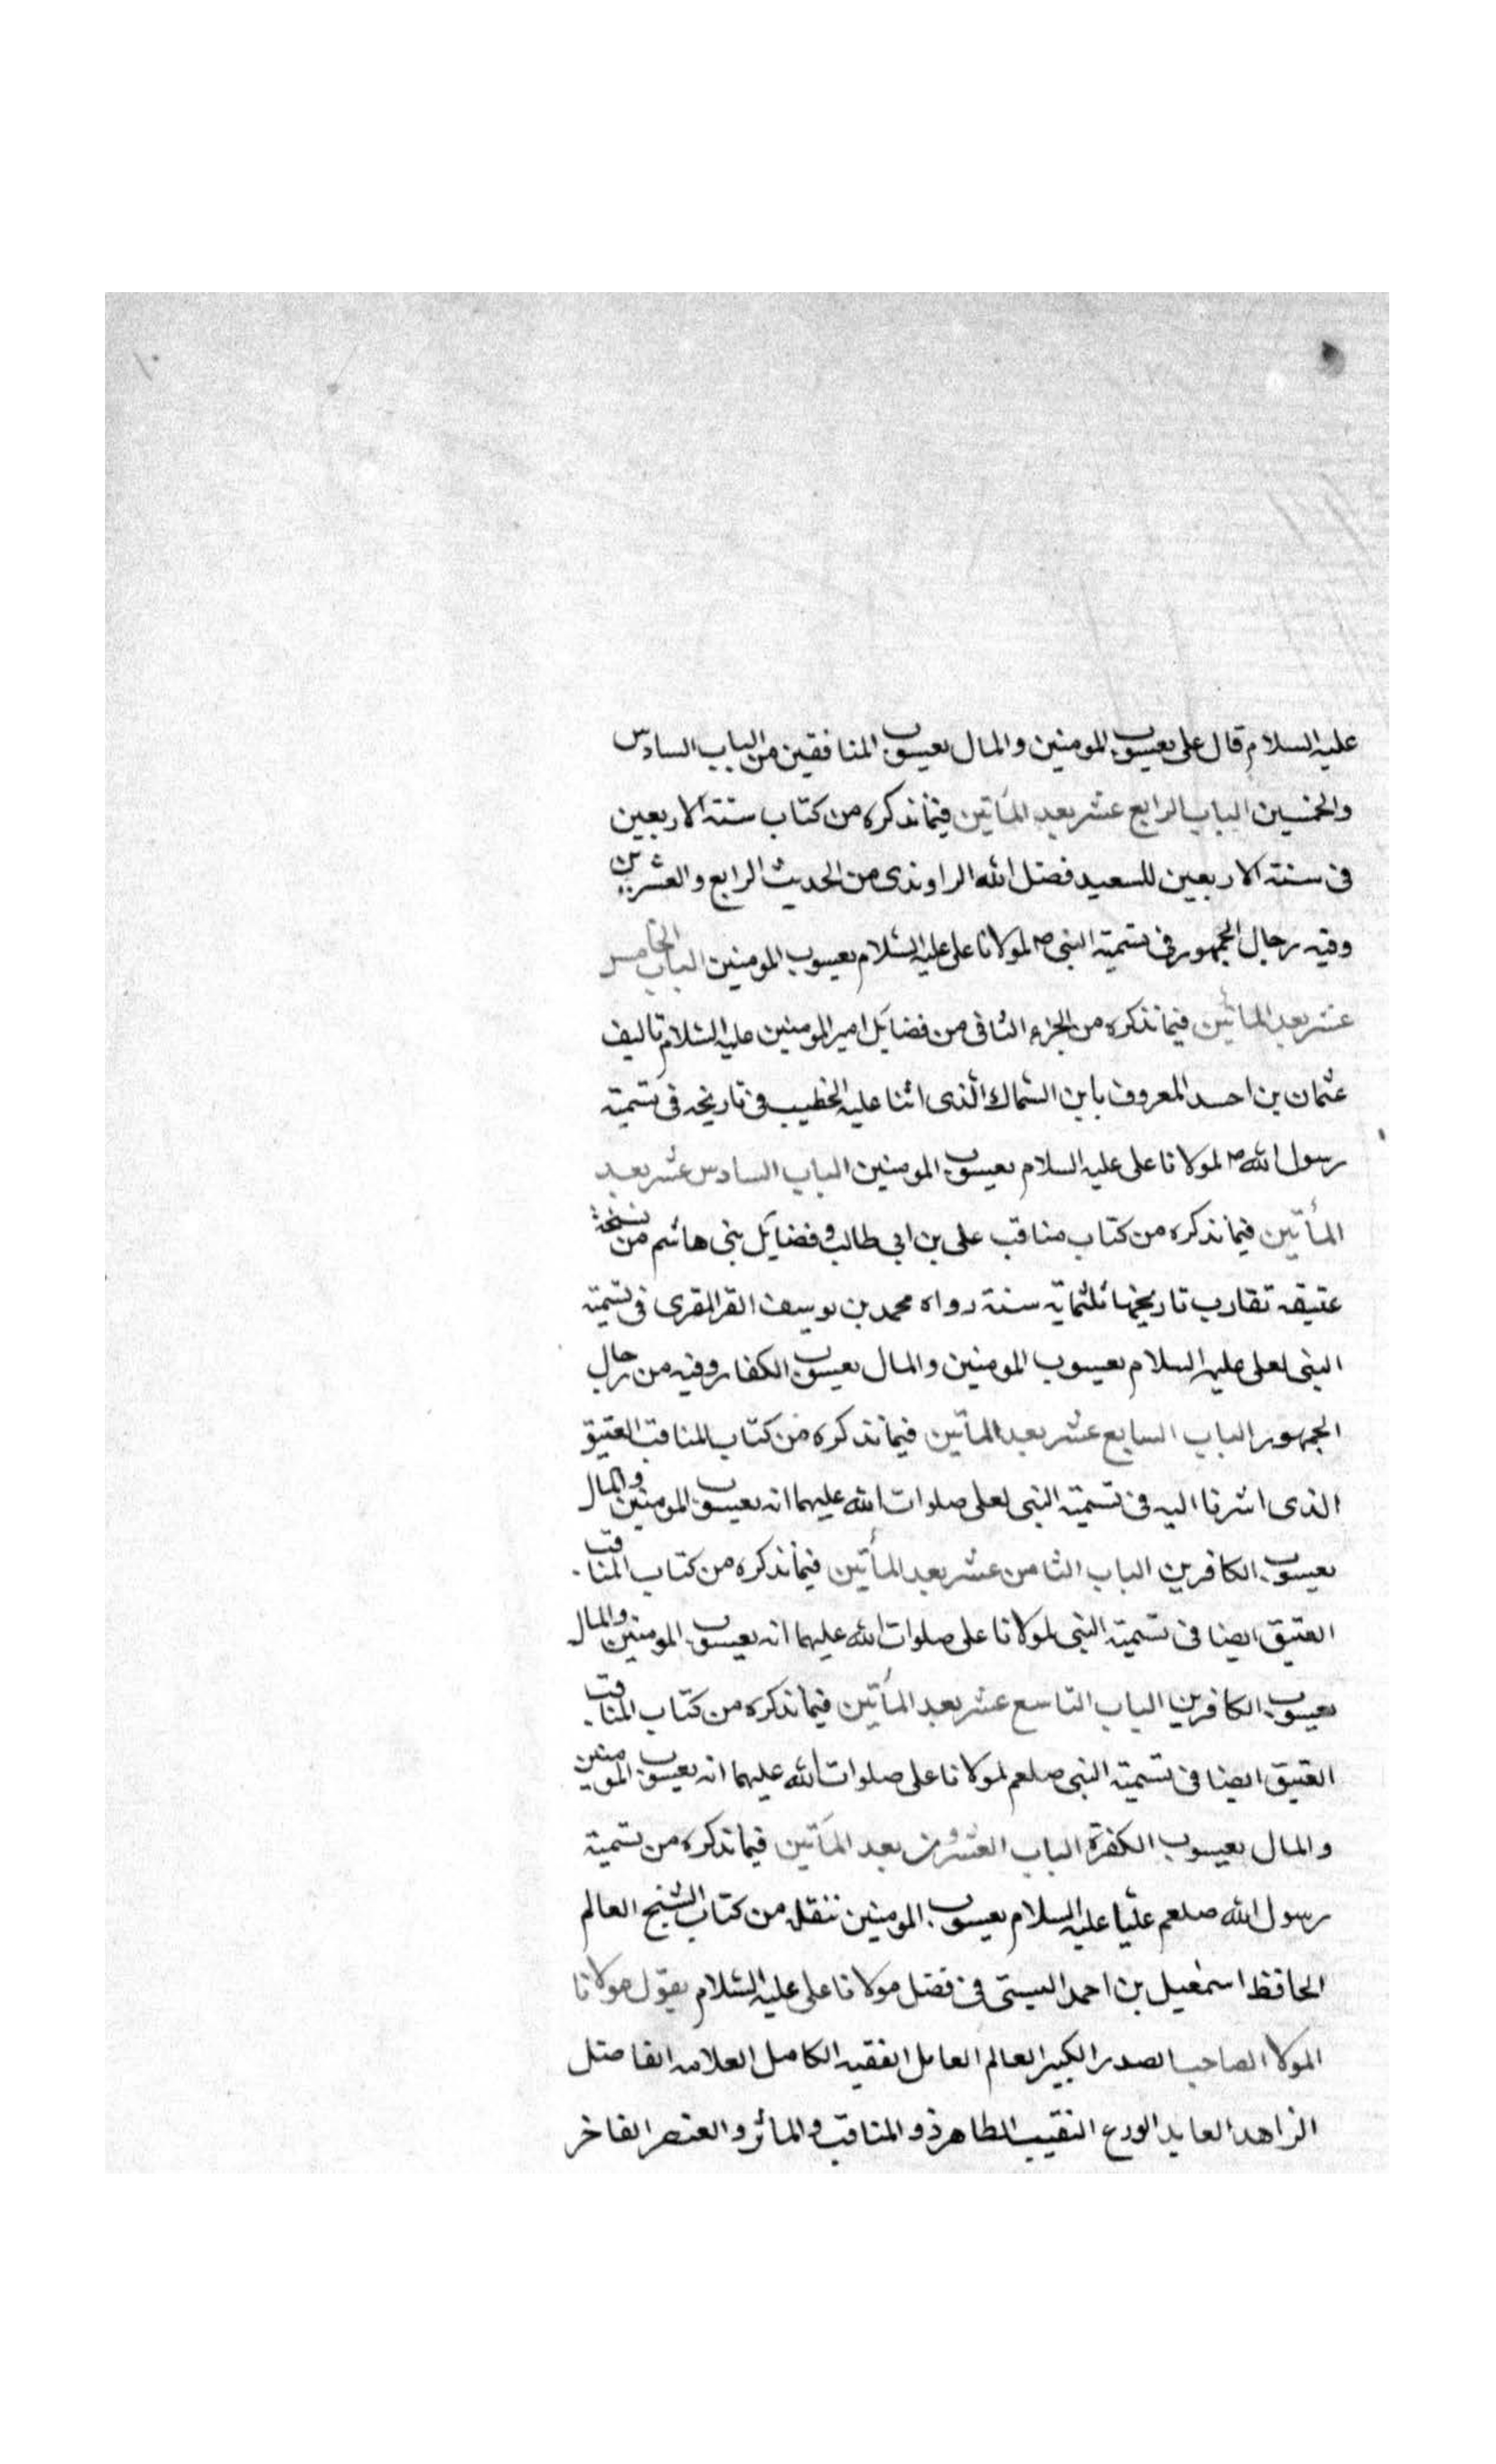 عليه السلام قال على يعسوب المومنين والمال يعسوب المنافقين من الباب السادس
والخمسين الباب الرابع عشر بعد المأتين فيما نذكره من كتاب سنة الاربعين
فى سنة الاربعين للسعيد فضل الله الراوندى من الحديث الرابع والعشرين
وفيه رجال الجمهور فى تسمية النبى ص لمولانا على عليه السلام يعسوب المومنين الباب الخامس
عشر بعد المأتين فيما نذكره من الجزء الثانى من فضايل امير المومنين عليه السلام تاليف
عثمان بن احمد المعروف بابن السماك الذى اثنا عليه الخطيب فى تاريخه فى تسمية
رسول الله ص لمولانا على عليه السلام يعسوب المومنين الباب السادس عشر بعد
المأتين فيما نذكره من كتاب مناقب على بن ابى طالب و فضايل بنى هاشم من نسخة
عتيقه تقارب تاريخها ثلثماية سنة رواه محمد بن يوسف القر المقرى فى تسمية
النبى لعلى عليه السلام يعسوب المومنين والمال يعسوب الكفار وفيه من رجال
الجمهور الباب السابع عشر بعد المأتين فيما نذكره من كتاب المناقب العتيق
الذى اشرنا اليه فى تسمية النبى لعلى صلوات الله عليهما انه يعسوب المومنين والمال
يعسوب الكافرين الباب الثامن عشر بعد المأتين فيما نذكره من كتاب المناقب
العتيق ايضا فى تسمية النبى لمولانا على صلوات الله عليهما انه يعسوب المومنين والمال
يعسوب الكافرين الباب التاسع عشر بعد المأتين فيما نذكره من كتاب المناقب
العتيق ايضا فى تسمية النبى صلعم لمولانا على صلوات الله عليهما انه يعسوب المومنين
والمال يعسوب الكفرة الباب العشرون بعد المأتين فيما نذكره من تسمية
رسول الله صلعم عليا عليه السلام يعسوب المومنين ننقله من كتاب الشيخ العالم
الحافظ اسمعيل بن احمد البستى فى فضل مولانا على عليه السلام يقول مولانا
المولا الصاحب الصدر الكبير العالم العامل الفقيه الكامل العلامه الفاضل
الزاهد العابد الورع النقيب الطاهر ذو المناقب والمآثر والعنصر الفاخر